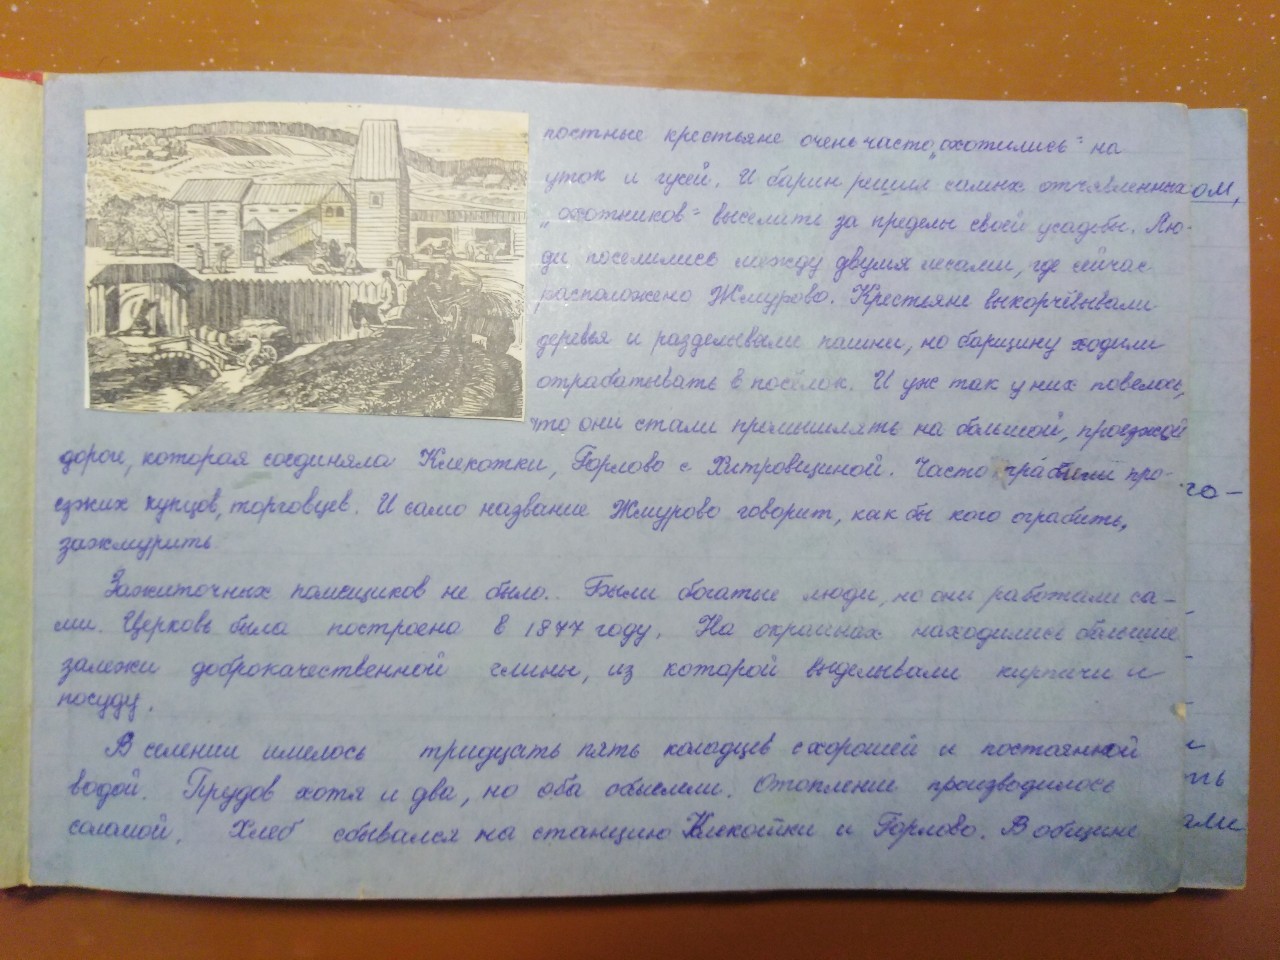 постные крестьяне очень часто „охотились" на
уток и гусей. И барин решил самых отчаявленных
„охотников" выселить за пределы своей усадьбы. Лю-
ди поселились между двумя лесами, где сейчас
расположено Жмурово. Крестьяне выкорчёвывали
деревья и разделывали пашни, но барщину ходили
отрабатывать в посёлок. И уж так у них повелось,
что они стали промышлять на большой, проезжей
дороге, которая соединяла Клекотки, Горлово с Хитровщиной. Часто грабили про-
езжих купцов, торговцев. И само название Жмурово говорит, как бы кого ограбить,
зажмурить
Зажиточных помещиков не было. Были богатые люди, но они работали са-
ми. Церковь была построена в 1877 году. На окраинах находились большие
залежи доброкачественной глины, из которой выделывали кирпичи и
посуду.
В селении имелось тридцать пять колодцев с хорошей и постоянной
водой. Прудов хотя и два, но оба обмелели. Отопление производилось
соломой. Хлеб сбывался на станцию Клекотки и Горлово. В общине
ом,
го-
и
ть
ами